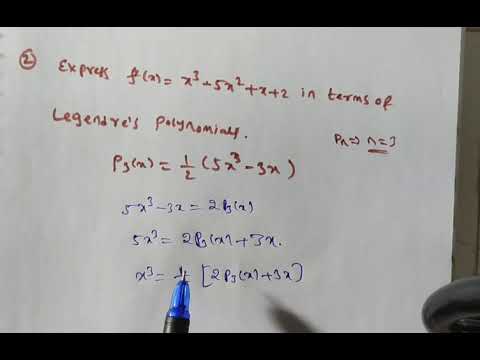 ② Express f(x) = x³+5x²+x+2 in terms of
Legendre's Polynomials.
Pn⇒ n=3
P₃(x) = 1/2 (5x³-3x)
5x³-3x = 2P₃(x)
5x³ = 2P₃(x)+3x.
x³ = [2P₃(x)+3x]